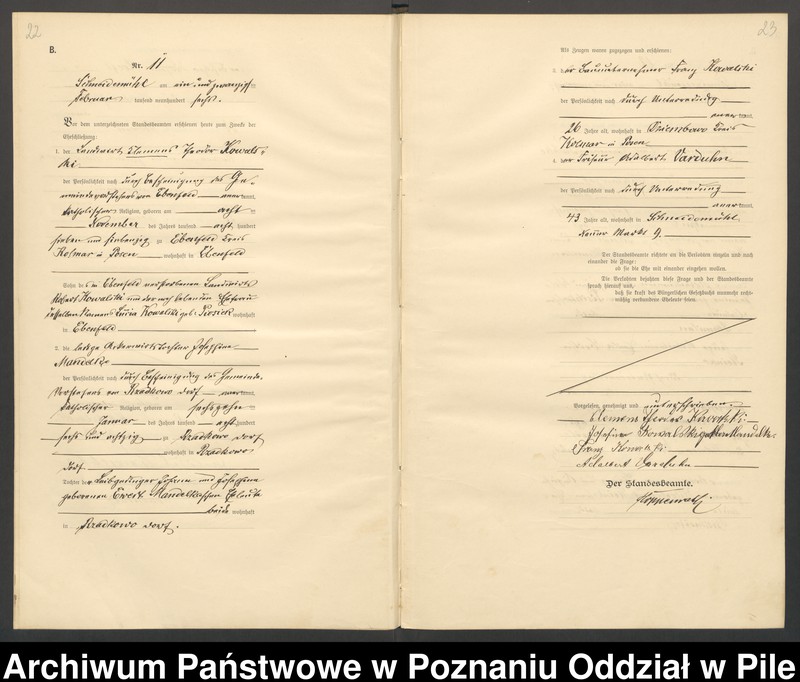 22
B.
Nr. 11
Schneidemühl am ein und zwanzigsten
Februar tausend neunhundert sechs.
Vor dem unterzeichneten Standesbeamten erschienen heute zum Zwecke der
Eheschließung:
1. der Landwirt Klemens Theodor Kowals-
ki
der Persönlichkeit nach durch Bescheinigung des Ge-
meindevorstehers von Ebenfeld anerkannt,
katholischer Religion, geboren am acht
November des Jahres tausend acht hundert
sieben und siebenzig zu Ebenfeld Kreis
Kolmar i Posen wohnhaft in Ebenfeld
Sohn des in Ebenfeld verstorbenen Landwirts
Robert Kowalski und der noch lebenden Ehefrau
desselben Namens Lucia Kowalski geb. wohnhaft
in Ebenfeld
2. die ledige Ackerwirtstochter Josephine
Mandelke
der Persönlichkeit nach durch Bescheinigung des Gemeinde-
Vorstehers von Rzadkowo Dorf anerkannt,
katholischer Religion, geboren am sechszehn
Januar des Jahres tausend acht hundert
sechs und achtzig zu Rzadkowo Dorf
wohnhaft in Rzadkowo
Dorf
Tochter der Leibgedinger Johann und Josephine
geborenen Mandelkeschen Eheleute
beide wohnhaft
in Rzadkowo Dorf.
23
Als Zeugen waren zugezogen und erschienen:
3. der Bauunternehmer Franz Kowalski
der Persönlichkeit nach durch Unterredung
anerkannt,
26 Jahre alt, wohnhaft in Kreis
Kolmar i Posen
4. der Friseur Adalbert Varduhn
der Persönlichkeit nach durch Unterredung
anerkannt,
43 Jahre alt, wohnhaft in Schneidemühl
Neuer Markt 9.
Der Standesbeamte richtete an die Verlobten einzeln und nach
einander die Frage:
ob sie die Ehe mit einander eingehen wollen.
Die Verlobten bejahten diese Frage und der Standesbeamte
sprach hierauf aus,
daß sie kraft des Bürgerlichen Gesetzbuchs nunmehr recht-
mäßig verbundene Eheleute seien.
Vorgelesen, genehmigt und unterschrieben.
Klemens Theodor Kowalski
Josephine Kowalski geborene Mandelke.
Franz Kowalski
Adalbert Varduhn
Der Standesbeamte.
Archiwum Państwowe w Poznaniu Oddział w Pile